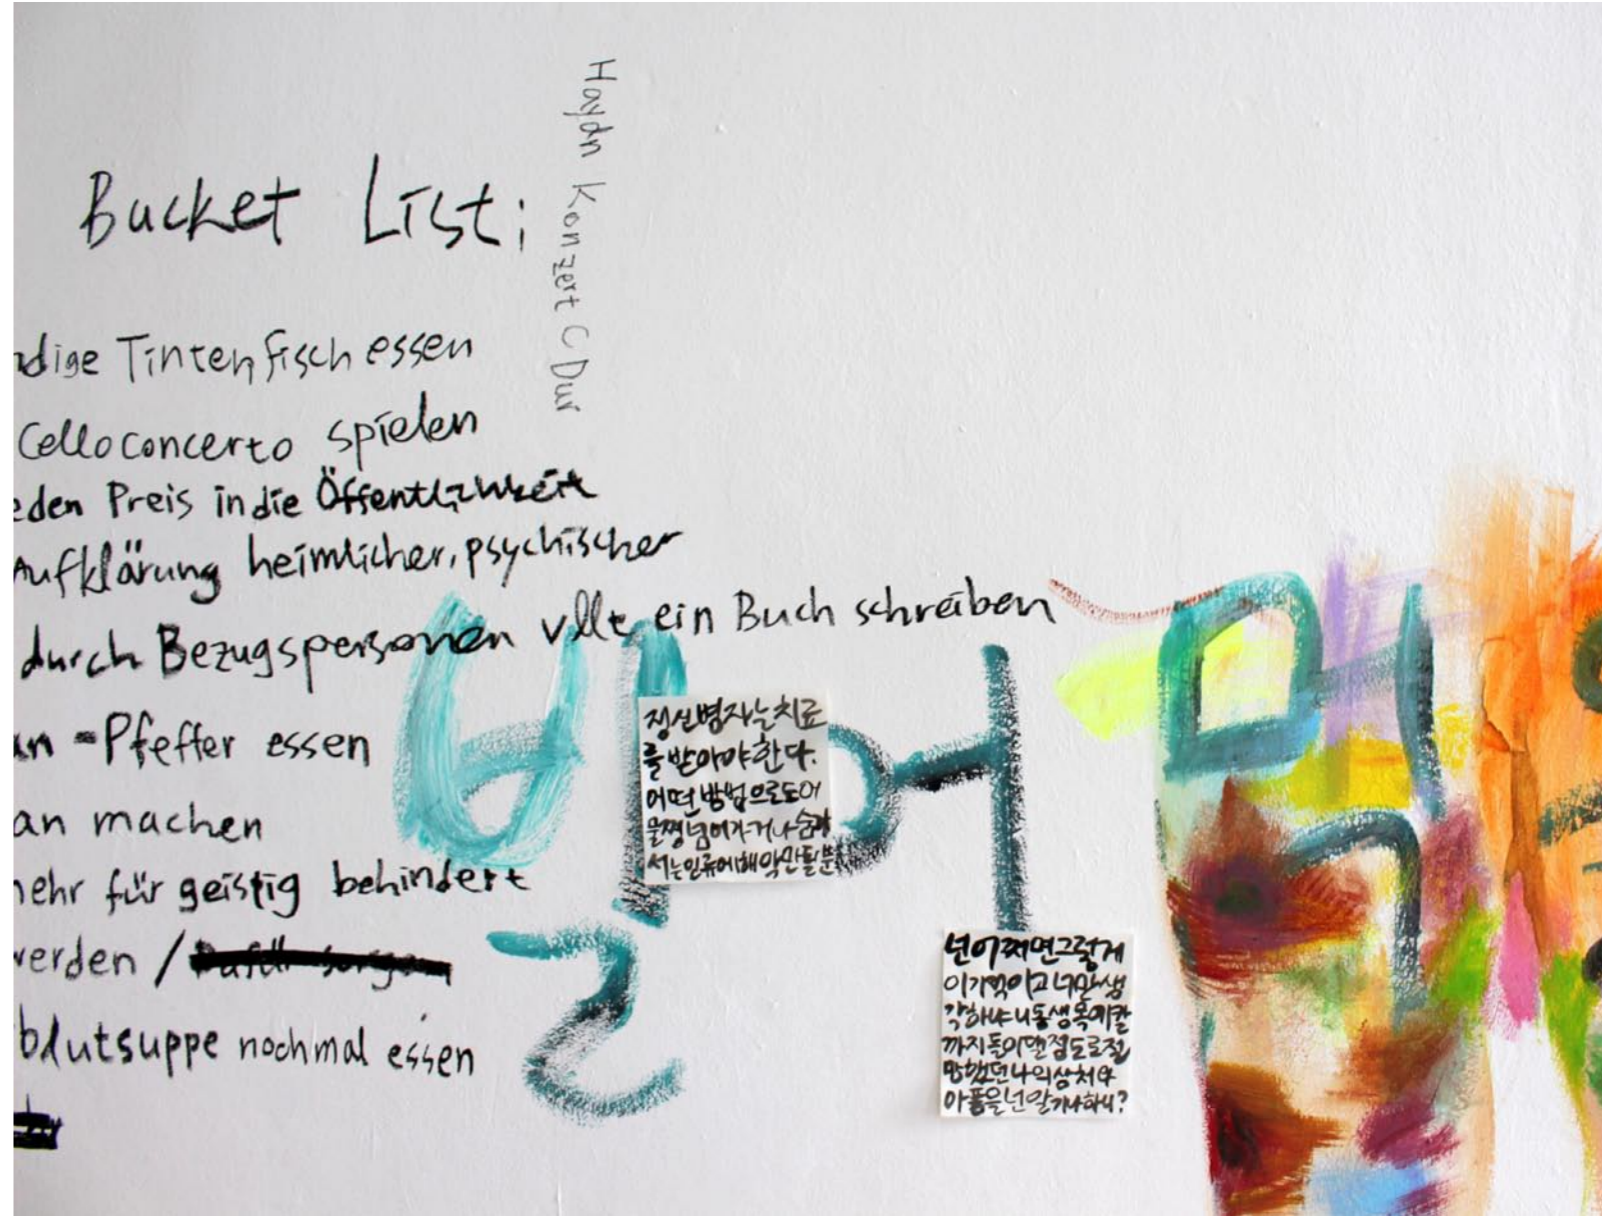 Haydn Konzert C Dur
Bucket List;
dige Tintenfisch essen
Celloconcerto spielen
eden Preis in die Öffentlichkeit
Aufklärung heimlicher, psychischer
durch Bezugspersonen vllt ein Buch schreiben
an-Pfeffer essen
an machen
mehr für geistig behindert
werden /
blutsuppe nochmal essen
빌어먹
정신병자는치료
를받아야한다.
어떤방법으로도어
물쩡넘어가거나숨겨
서는인류에해악만될뿐
넌어쩌면그렇게
이기적이고너만생
각하냐니동생목에칼
까지들이댈정도로절
망했던나의상처와
아픔을넌알기나하니?